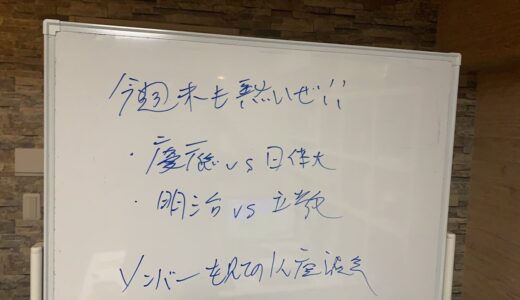 今週末も熱いぜ!!
・慶應 vs 日体大
・明治 vs 立教
メンバーを見ての1人座談会